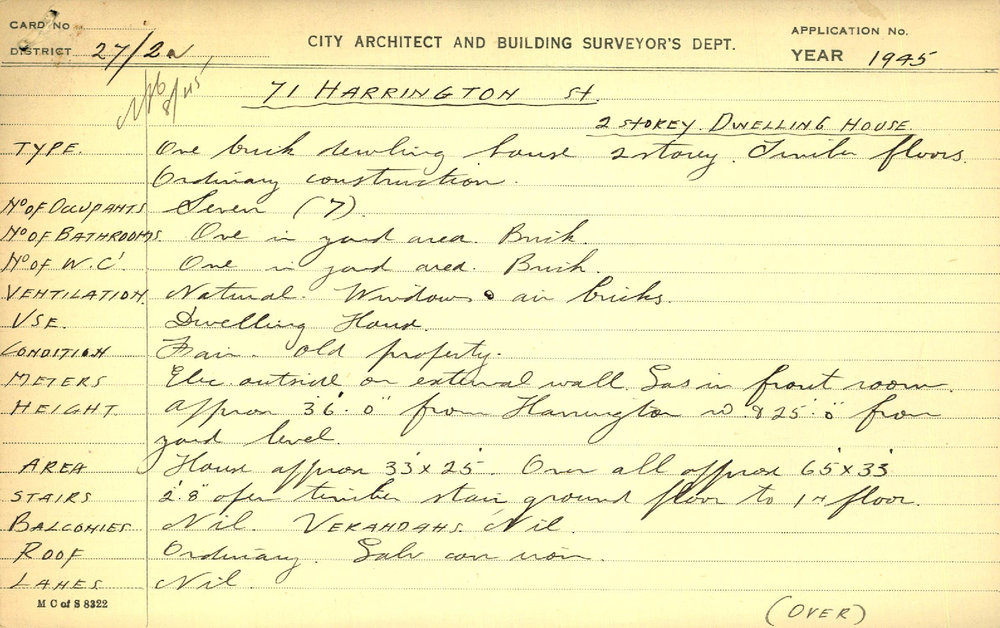 CARD No
DISTRICT 27/2a
CITY ARCHITECT AND BUILDING SURVEYOR'S DEPT.
APPLICATION No.
YEAR 1945
8/45
71 HARRINGTON St.
2 STOREY. DWELLING HOUSE
TYPE. One brick dewling house 2 storey. Timber floors.
Ordinary construction.
No OF OCCUPANTS Seven (7).
No OF BATHROOMS. One in yard area. Brick.
No OF W.C' One in yard area. Brick.
VENTILATION. Natural. Windows & air bricks.
USE. Dwelling House.
CONDITION Fair. Old property.
METERS Elec. outside on external wall. Gas in front room.
HEIGHT Approx 36'.0" from Harrington & 25'.0" from
yard level.
AREA House approx 33' x 25'. Over all approx 65' x 33'
STAIRS 2'.8" open timber stair ground floor to 1st floor.
BALCONIES Nil. VERANDAHS. Nil.
ROOF Ordinary. Galv corr iron.
LANES Nil.
M C of S 8322
(OVER)